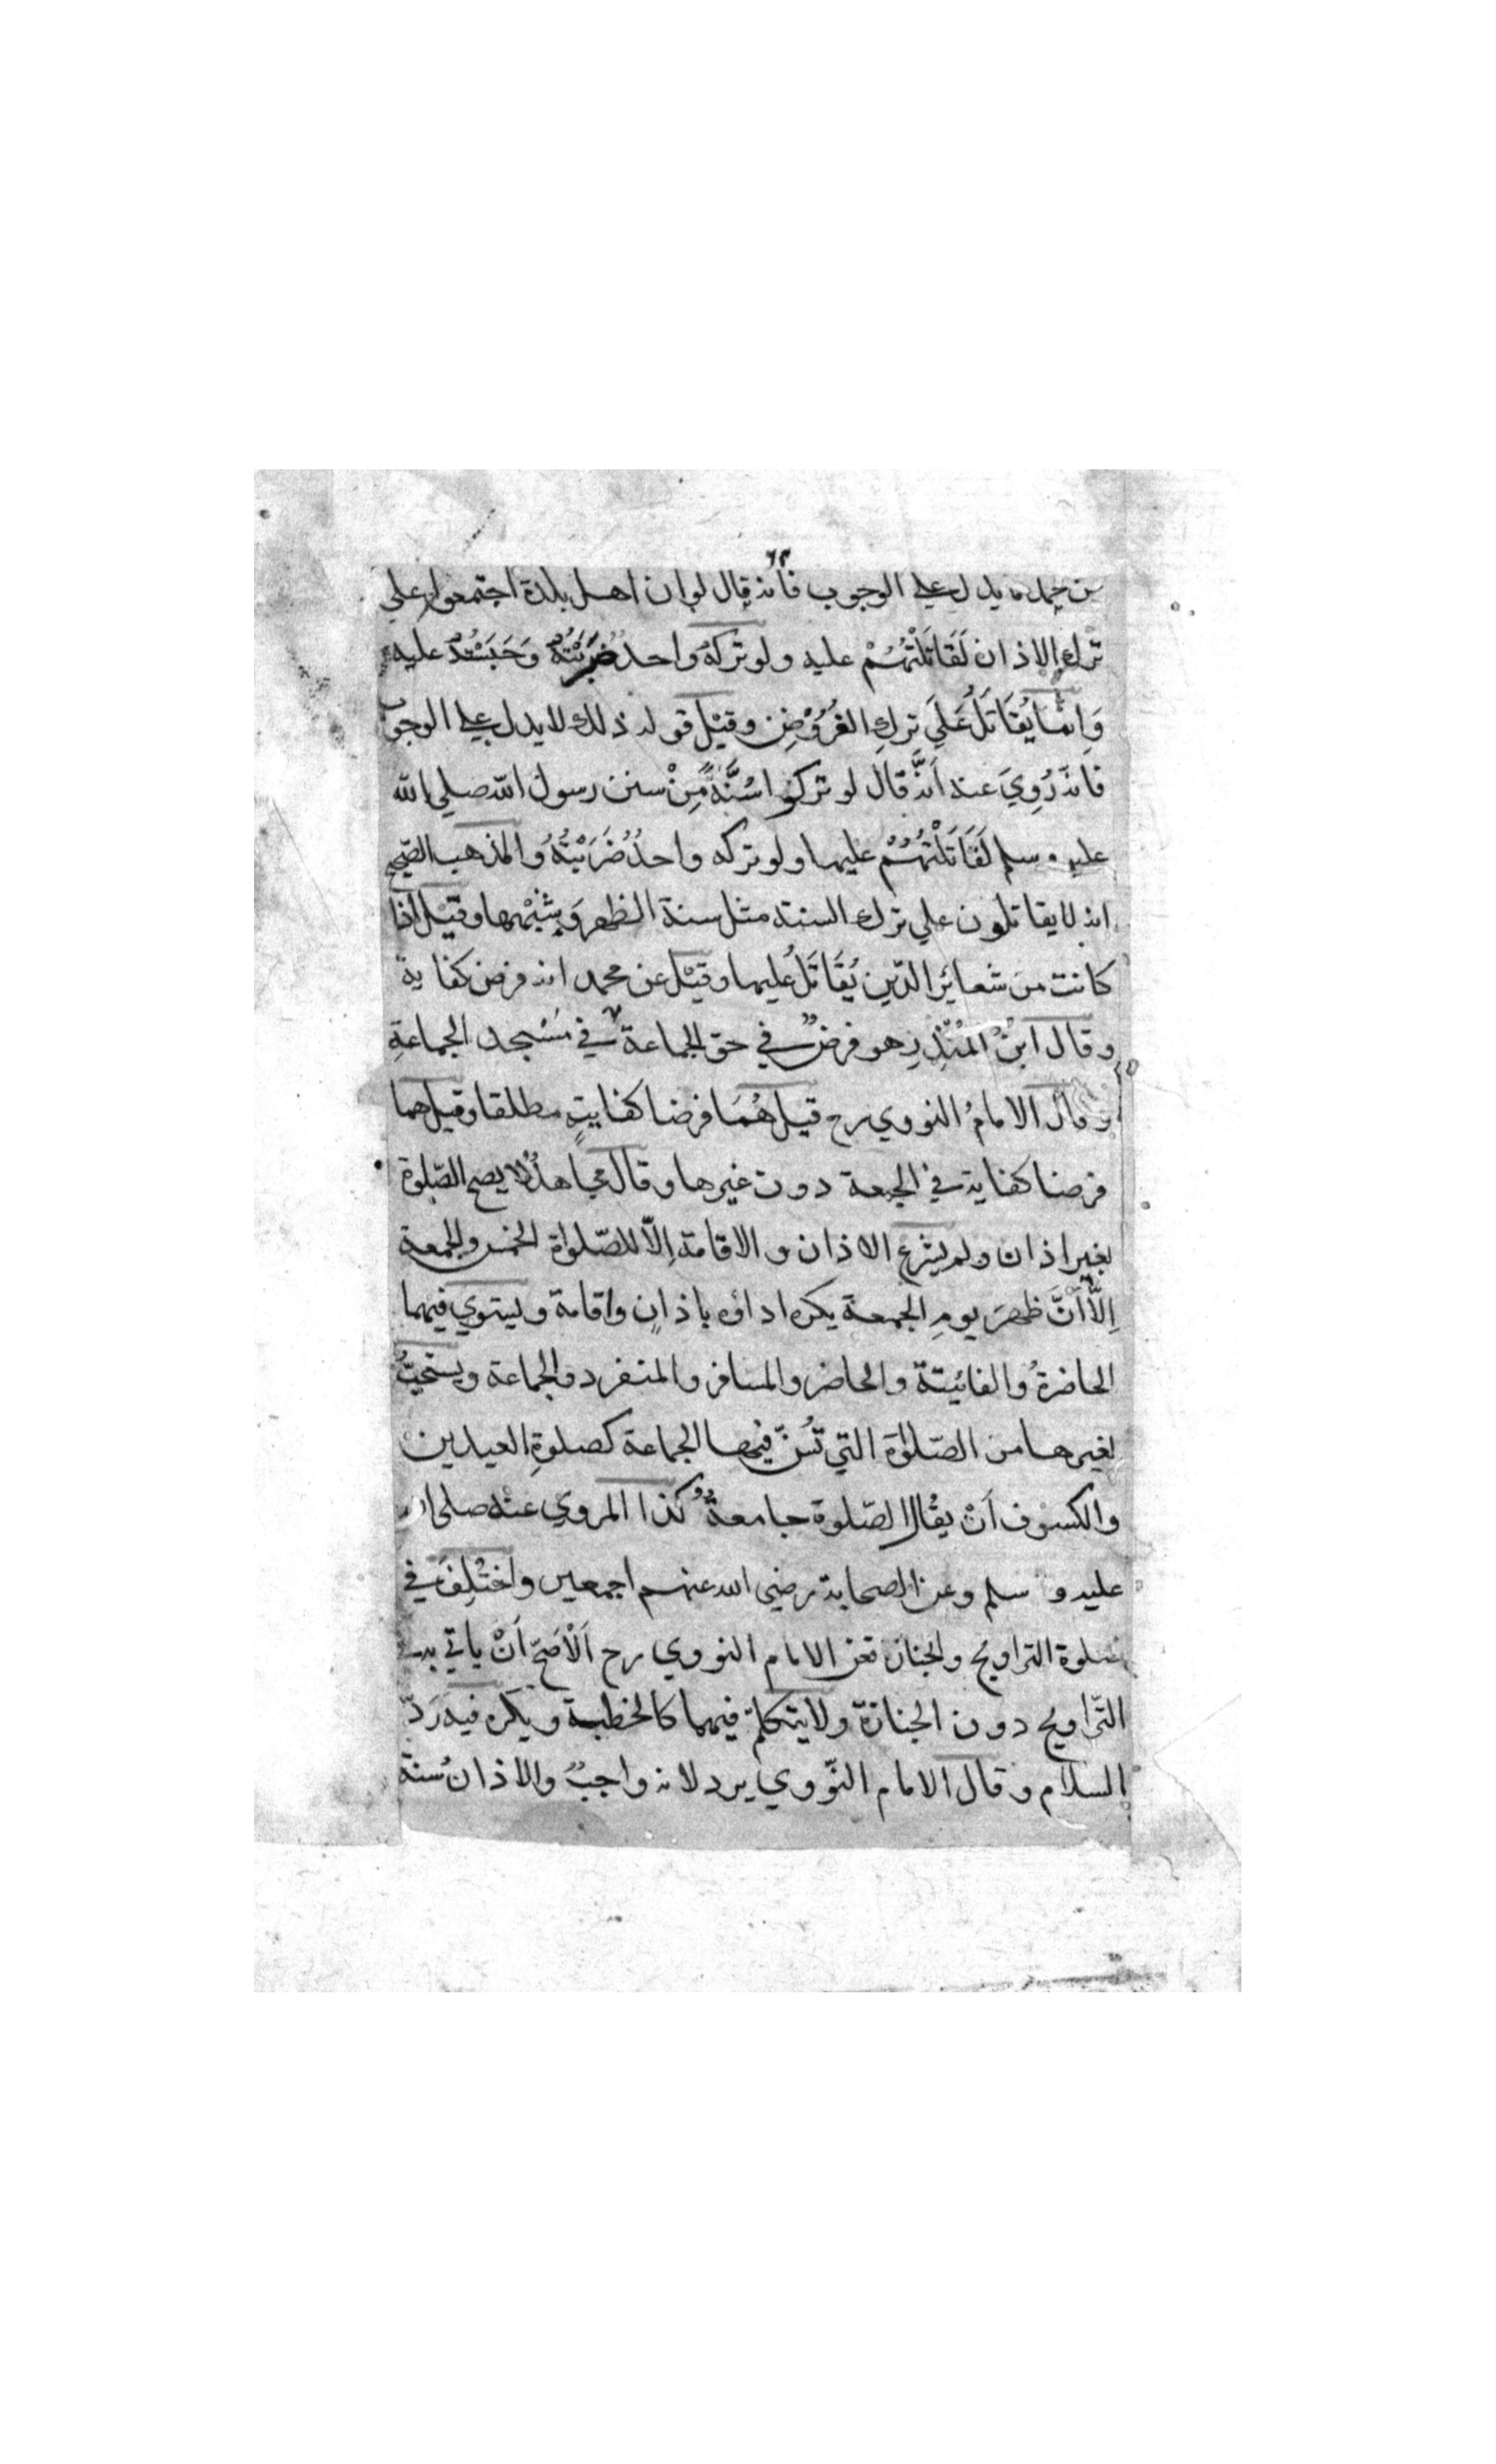 عن محمد ما يدل على الوجوب فانه قال لو ان اهل بلدة اجتمعوا على
ترك الاذان لَقَاتَلْتُهُمْ عليه ولو تركهُ واحدٌ ضَرَبْتُهُ وَحَبَسْتُهُ عليه
وَانما يُقَاتَلُ عَلَي تركِ الفُرُوْضِ وقيْلَ قوله ذلك لا يدل على الوجوب
فانه رُوِيَ عنه اَنَّه قال لو تركوا سُنَّةً مِنْ سنن رسول الله صلي الله
عليه وسلم لَقَاتَلْتُهُمْ عليها ولو تركه واحدٌ ضَرَبْتُهُ والمذهب الصّحيح
انه لا يقاتلون علي ترك السنة مثل سنة الظهر وَشِبْهِها وقيْل اذا
كانت من شعائر الدّين يُقَاتَلُ عليها وقيْل عن محمد انه فرض كفاية
وقال ابنُ المُنْذِرِ هو فرضٌ في حق الجماعة في مَسْجد الجماعةِ
وقال الامامُ النووي رح قيل هُمَا فرضا كفايةٍ مطلقا وقيل هما
فرضا كفاية في الجمعة دون غيرها وقال مجاهدٌ لا يصح الصّلوة
بغير اذان ولم يشرع الاذان والاقامة اِلّا للصّلواة الخمس والجمعة
اِلَّا اَنَّ ظهرَ يومِ الجمعة يكره اداؤه باذانٍ واقامة ويستوي فيهما
الحاضرةُ والفائيتة والحاضر والمسافر والمنفرد والجماعة ويستحبُّ
لغيرها من الصّلوٰة التي تُسنّ فيها الجماعة كصلوةِ العيدين
والكسوف اَنْ يقال الصّلوة جامعةٌ كذا المروي عنه صلى الله
عليه و سلم وعن الصحابة رضي الله عنهم اجمعين واختُلِفَ في
صلوة التراويح والجنازة فعن الامام النووي رح اَلْاَصَحّ اَنْ ياتي به في
التّراويح دون الجنازة ولا يتكلم فيهما كالخطبة ويكره فيه رَدّ
السلام وقال الامام النّووي يرد لانه واجبٌ والاذان سُنة